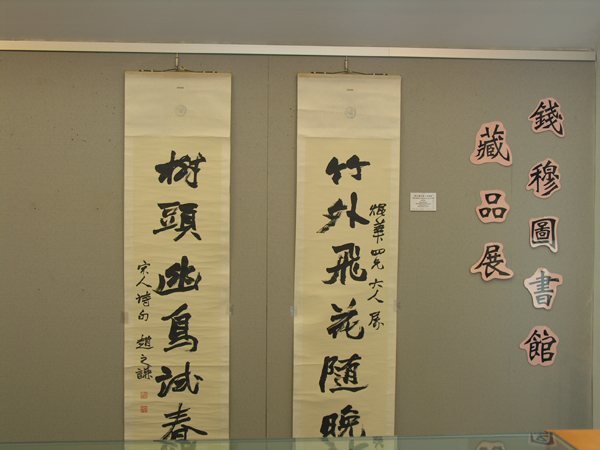 錢穆圖書館
藏品展
竹外飛花隨晚
焜華四兄大人屬
樹頭幽鳥試春
宋人詩句 趙之謙